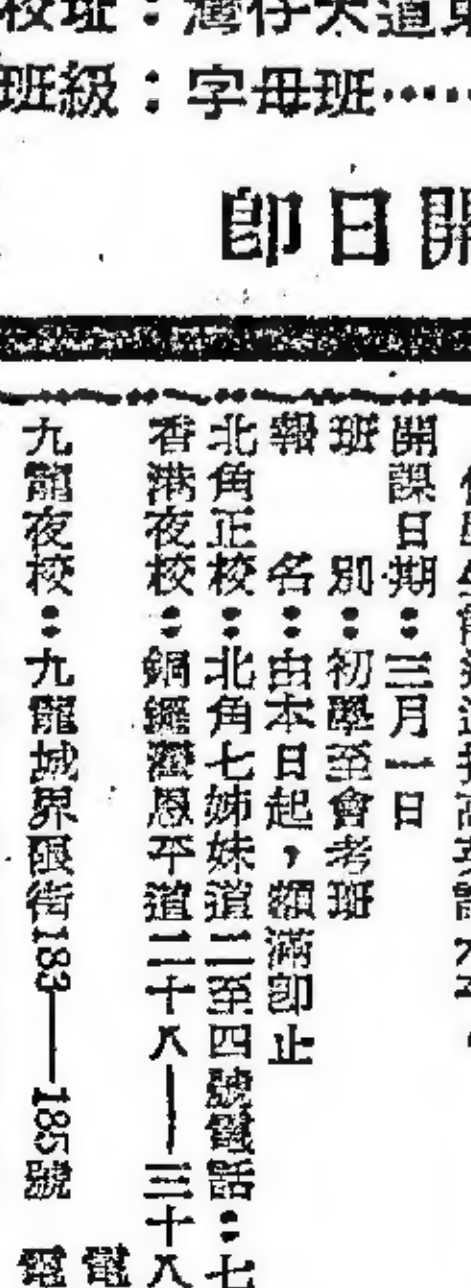 校址：灣仔大道東
班級：字母班……
即日開
開課日期：三月一日
班　別：初學至會考班
報　名：由本日起，額滿即止
北角正校：北角七姊妹道二至四號電話：七
香港夜校：銅鑼灣恩平道二十八——三十八
電
九龍夜校：九龍城界限街183——185號　電